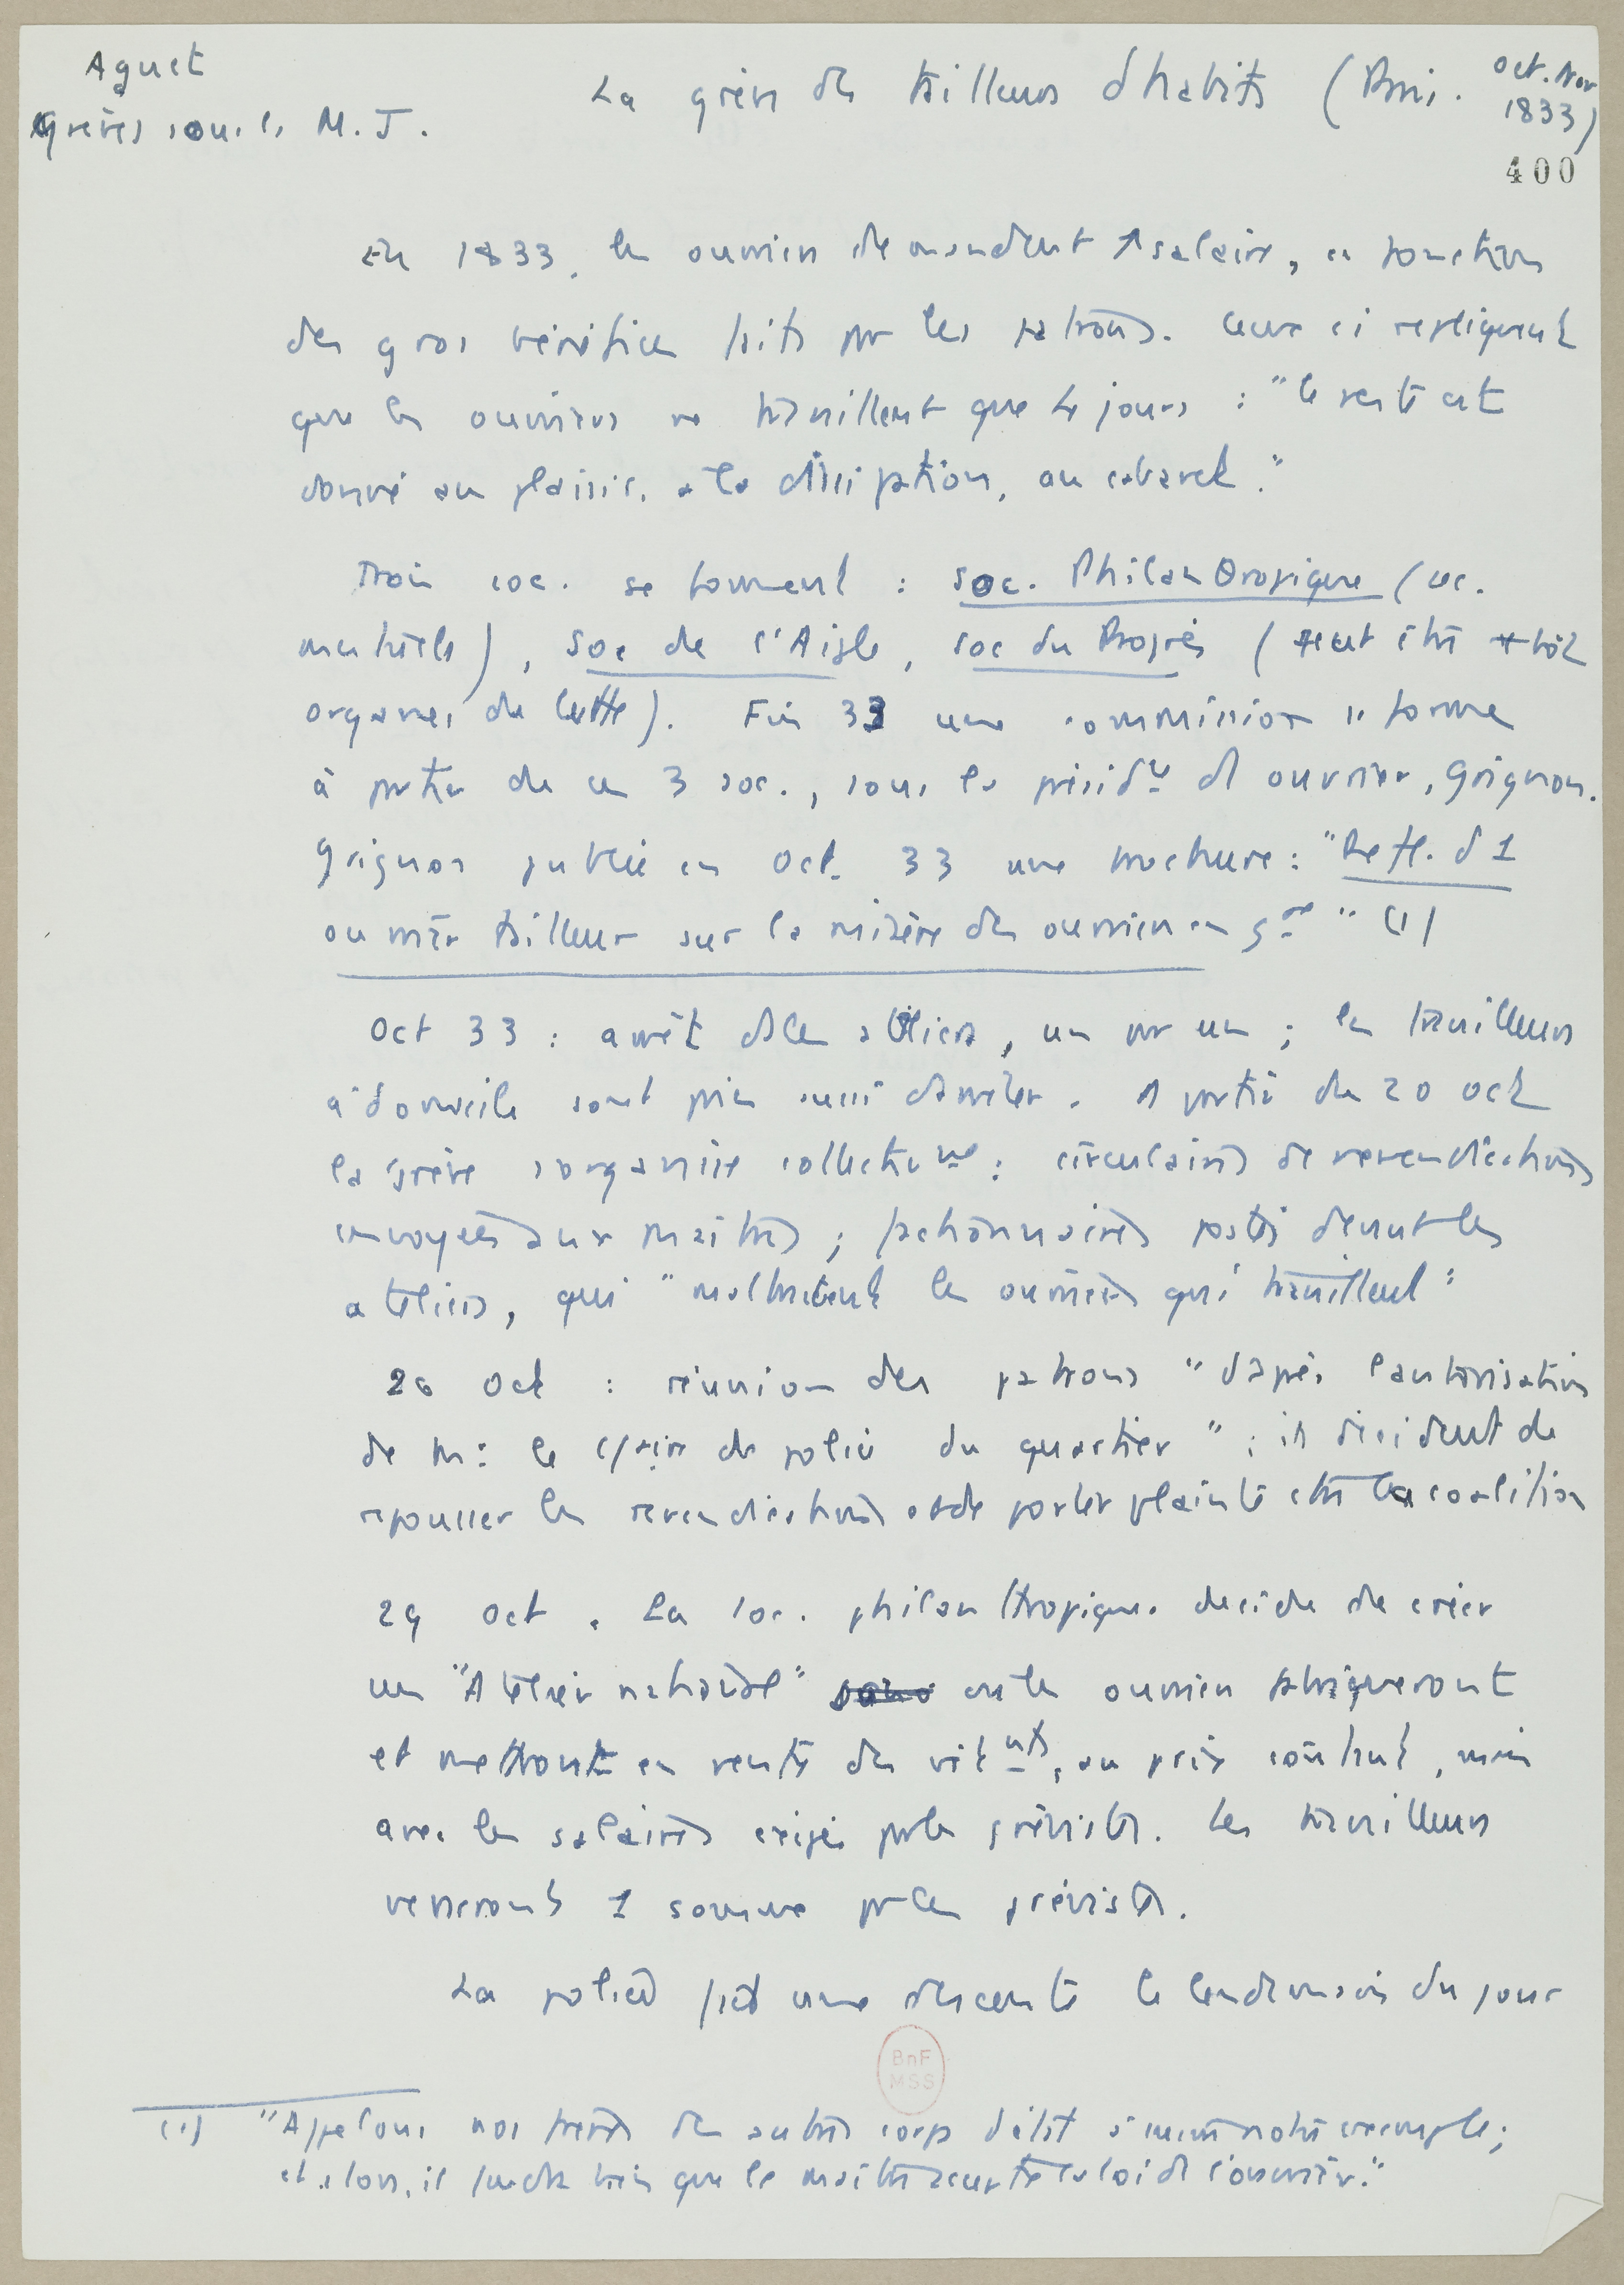 Aguet
Grèves sous la M. J.
La grève des tailleurs d'habits (Paris. Oct. Nov
1833)
400
En 1833, les ouvriers demandent ↑ salaire, en fonction
des gros bénéfices faits par les patrons. Ceux ci repliquent
que les ouvriers ne travaillent que 4 jours : "le reste est
donné au plaisir, à la dissipation, au cabaret."
Trois soc. se forment : Soc. Philanthropique (sec.
mutuels), Soc de l'Aigle, soc du Progrès (peut être + tôt
organes de lutte). Fin 33 une commission se forme
à partir de ces 3 soc., sous la présid ce d'1 ouvrier, Grignon.
Grignon publie en Oct. 33 une brochure : "Refl. d'1
ouvrier tailleur sur la misère des ouvriers en gal" (1)
Oct 33 : arrêt ds les ateliers, un par un ; les travailleurs
à domicile sont priés aussi d'arrêter. A partir du 20 oct
la grève s'organise collectivmt : circulaires de revendications
envoyées aux maîtres ; factionnaires postés devant les
ateliers, qui "maltraitent les ouvriers qui travaillent"
20 oct : réunion des patrons "d'après l'autorisation
de Mr le c/saire de police du quartier" ; ils décident de
repousser les revendications et de porter plainte ctre la coalition
29 oct. La soc. philanthropique decide de créer
un "Atelier national" où les ouvriers fabriqueront
et mettront en vente des vêtmts, au prix coûtant, mais
avec les salaires exigés par les grévistes. Les travailleurs
verseront 1 somme pr les grévistes.
La police fait une descente le lendemain du jour
BnF
MSS
(1) "Appelons nos frères des autres corps d'état à suivre notre exemple ;
et alors, il faudra bien que le maître accepte la loi de l'ouvrier."